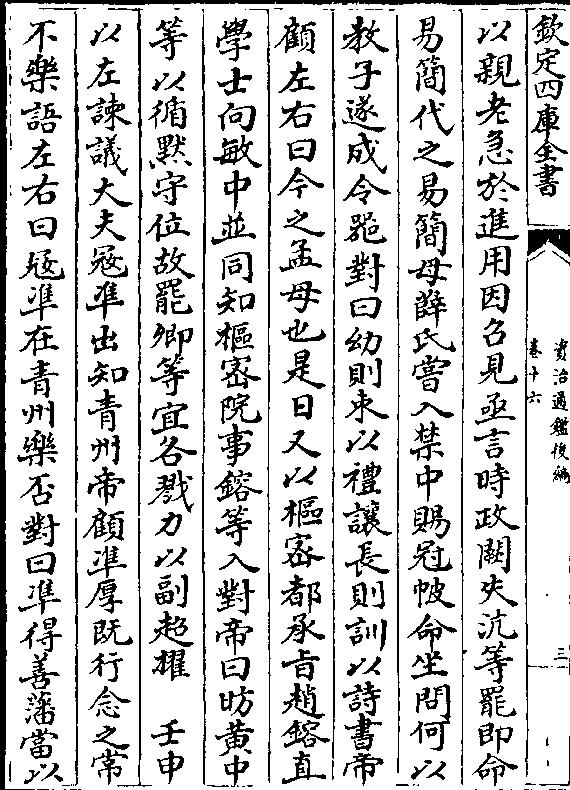 欽定四庫全書
資治通鑑後編
卷十六
三
以親老急於進用因召見亟言時政闕失沆等罷即命
易簡代之易簡母薛氏嘗入禁中賜冠帔命坐問何以
教子遂成令器對曰幼則束以禮讓長則訓以詩書帝
顧左右曰今之孟母也是日又以樞密都承旨趙鎔直
學士向敏中並同知樞密院事鎔等入對帝曰昉黄中
等以循黙守位故罷卿等宜各戮力以副超擢　壬申
以左諫議大夫寇準出知青州帝顧準厚既行念之常
不樂語左右曰寇準在青州樂否對曰準得善藩當以